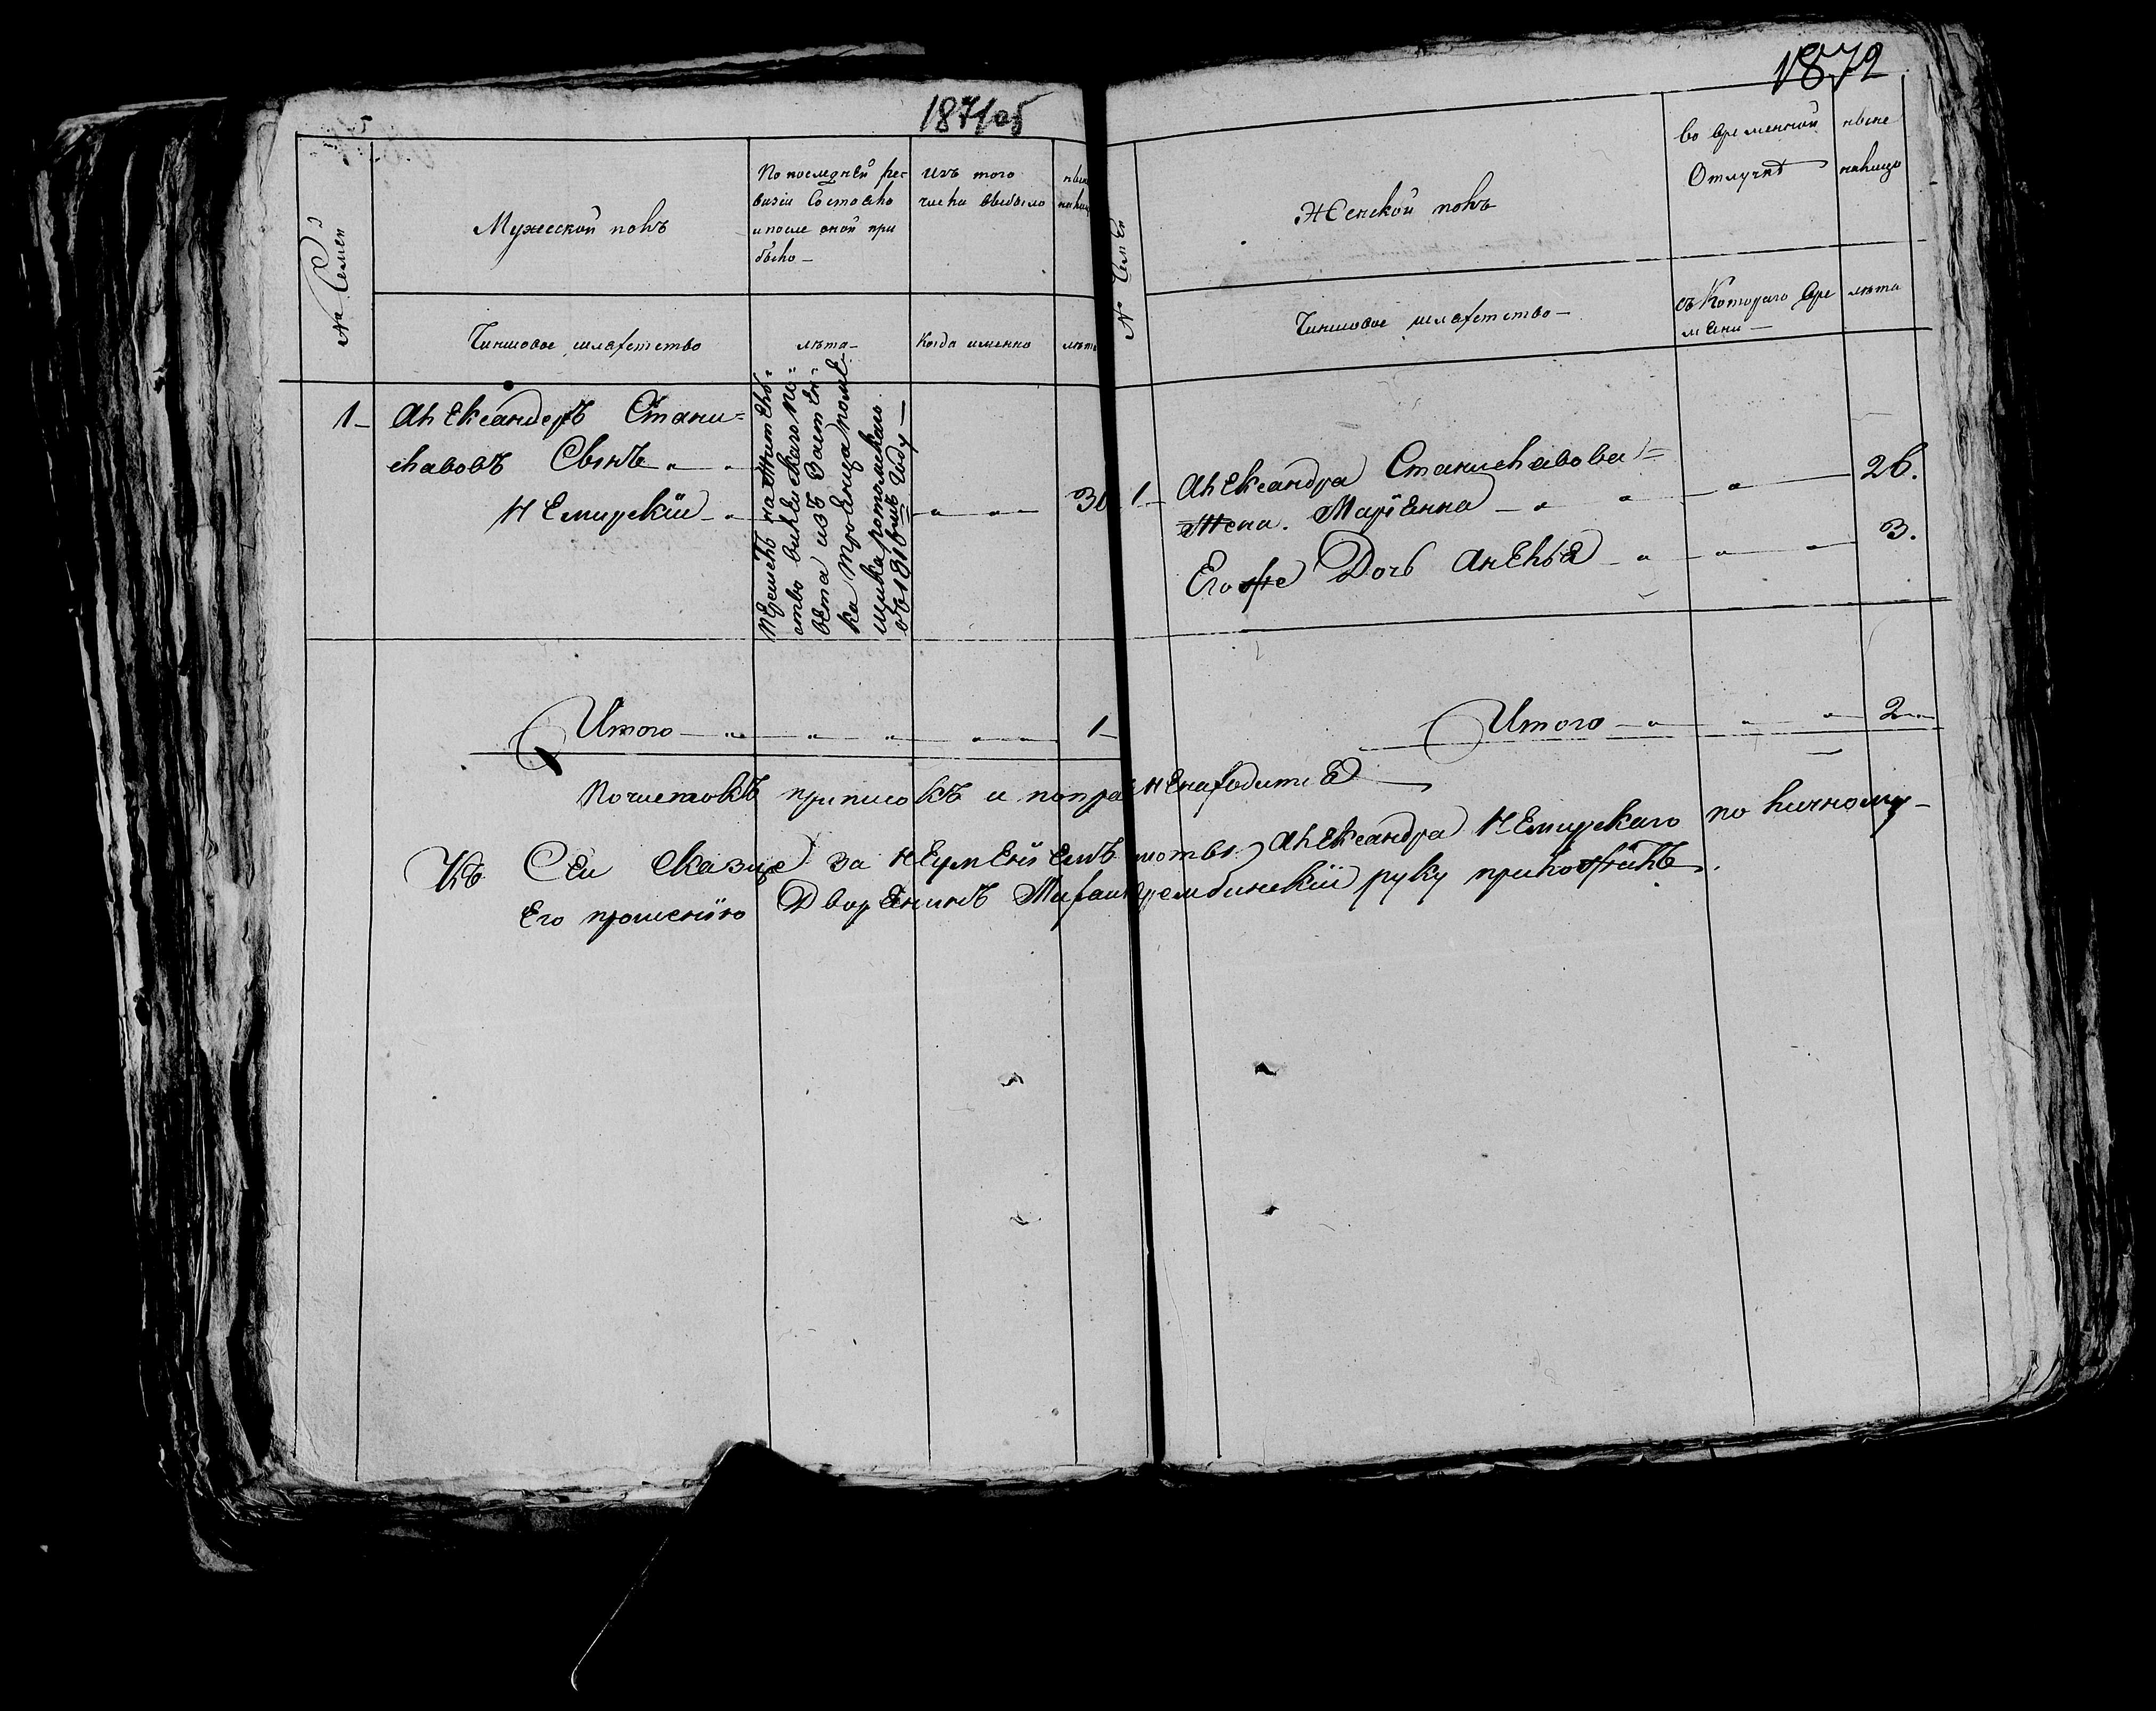 1871 об
№ Семеи
Мужеской полъ
По последней ре-
визіи состояло
и после оной при
было —
изъ того
числа выбыло
ныне
Чиншовое шляхетство
лѣта —
Когда именно
лѣта
1 — Александеръ Стани=
славовъ Сынъ
Немирскій
перешелъ на Жител=
ство виленскаго по=
вета изъ
ка помѣ
щика
въ 1816 мъ Году —
Итого 1
1872
№ Семеи
Женской полъ
во временной
Отлучке
ныне
налицо
Чиншовое шляхетство —
съ Котораго вре
мени —
лѣта
1 — Александра Станиславова =
Жена. Маріенна 26.
Его же Дочь Анеля 3.
Итого 2
Почистокъ приписокъ и ненаходится
Къ Сей сказце за неуменіемъ Александра Немирскаго по личному
Его прошенію Дворенинъ руку приложилъ.